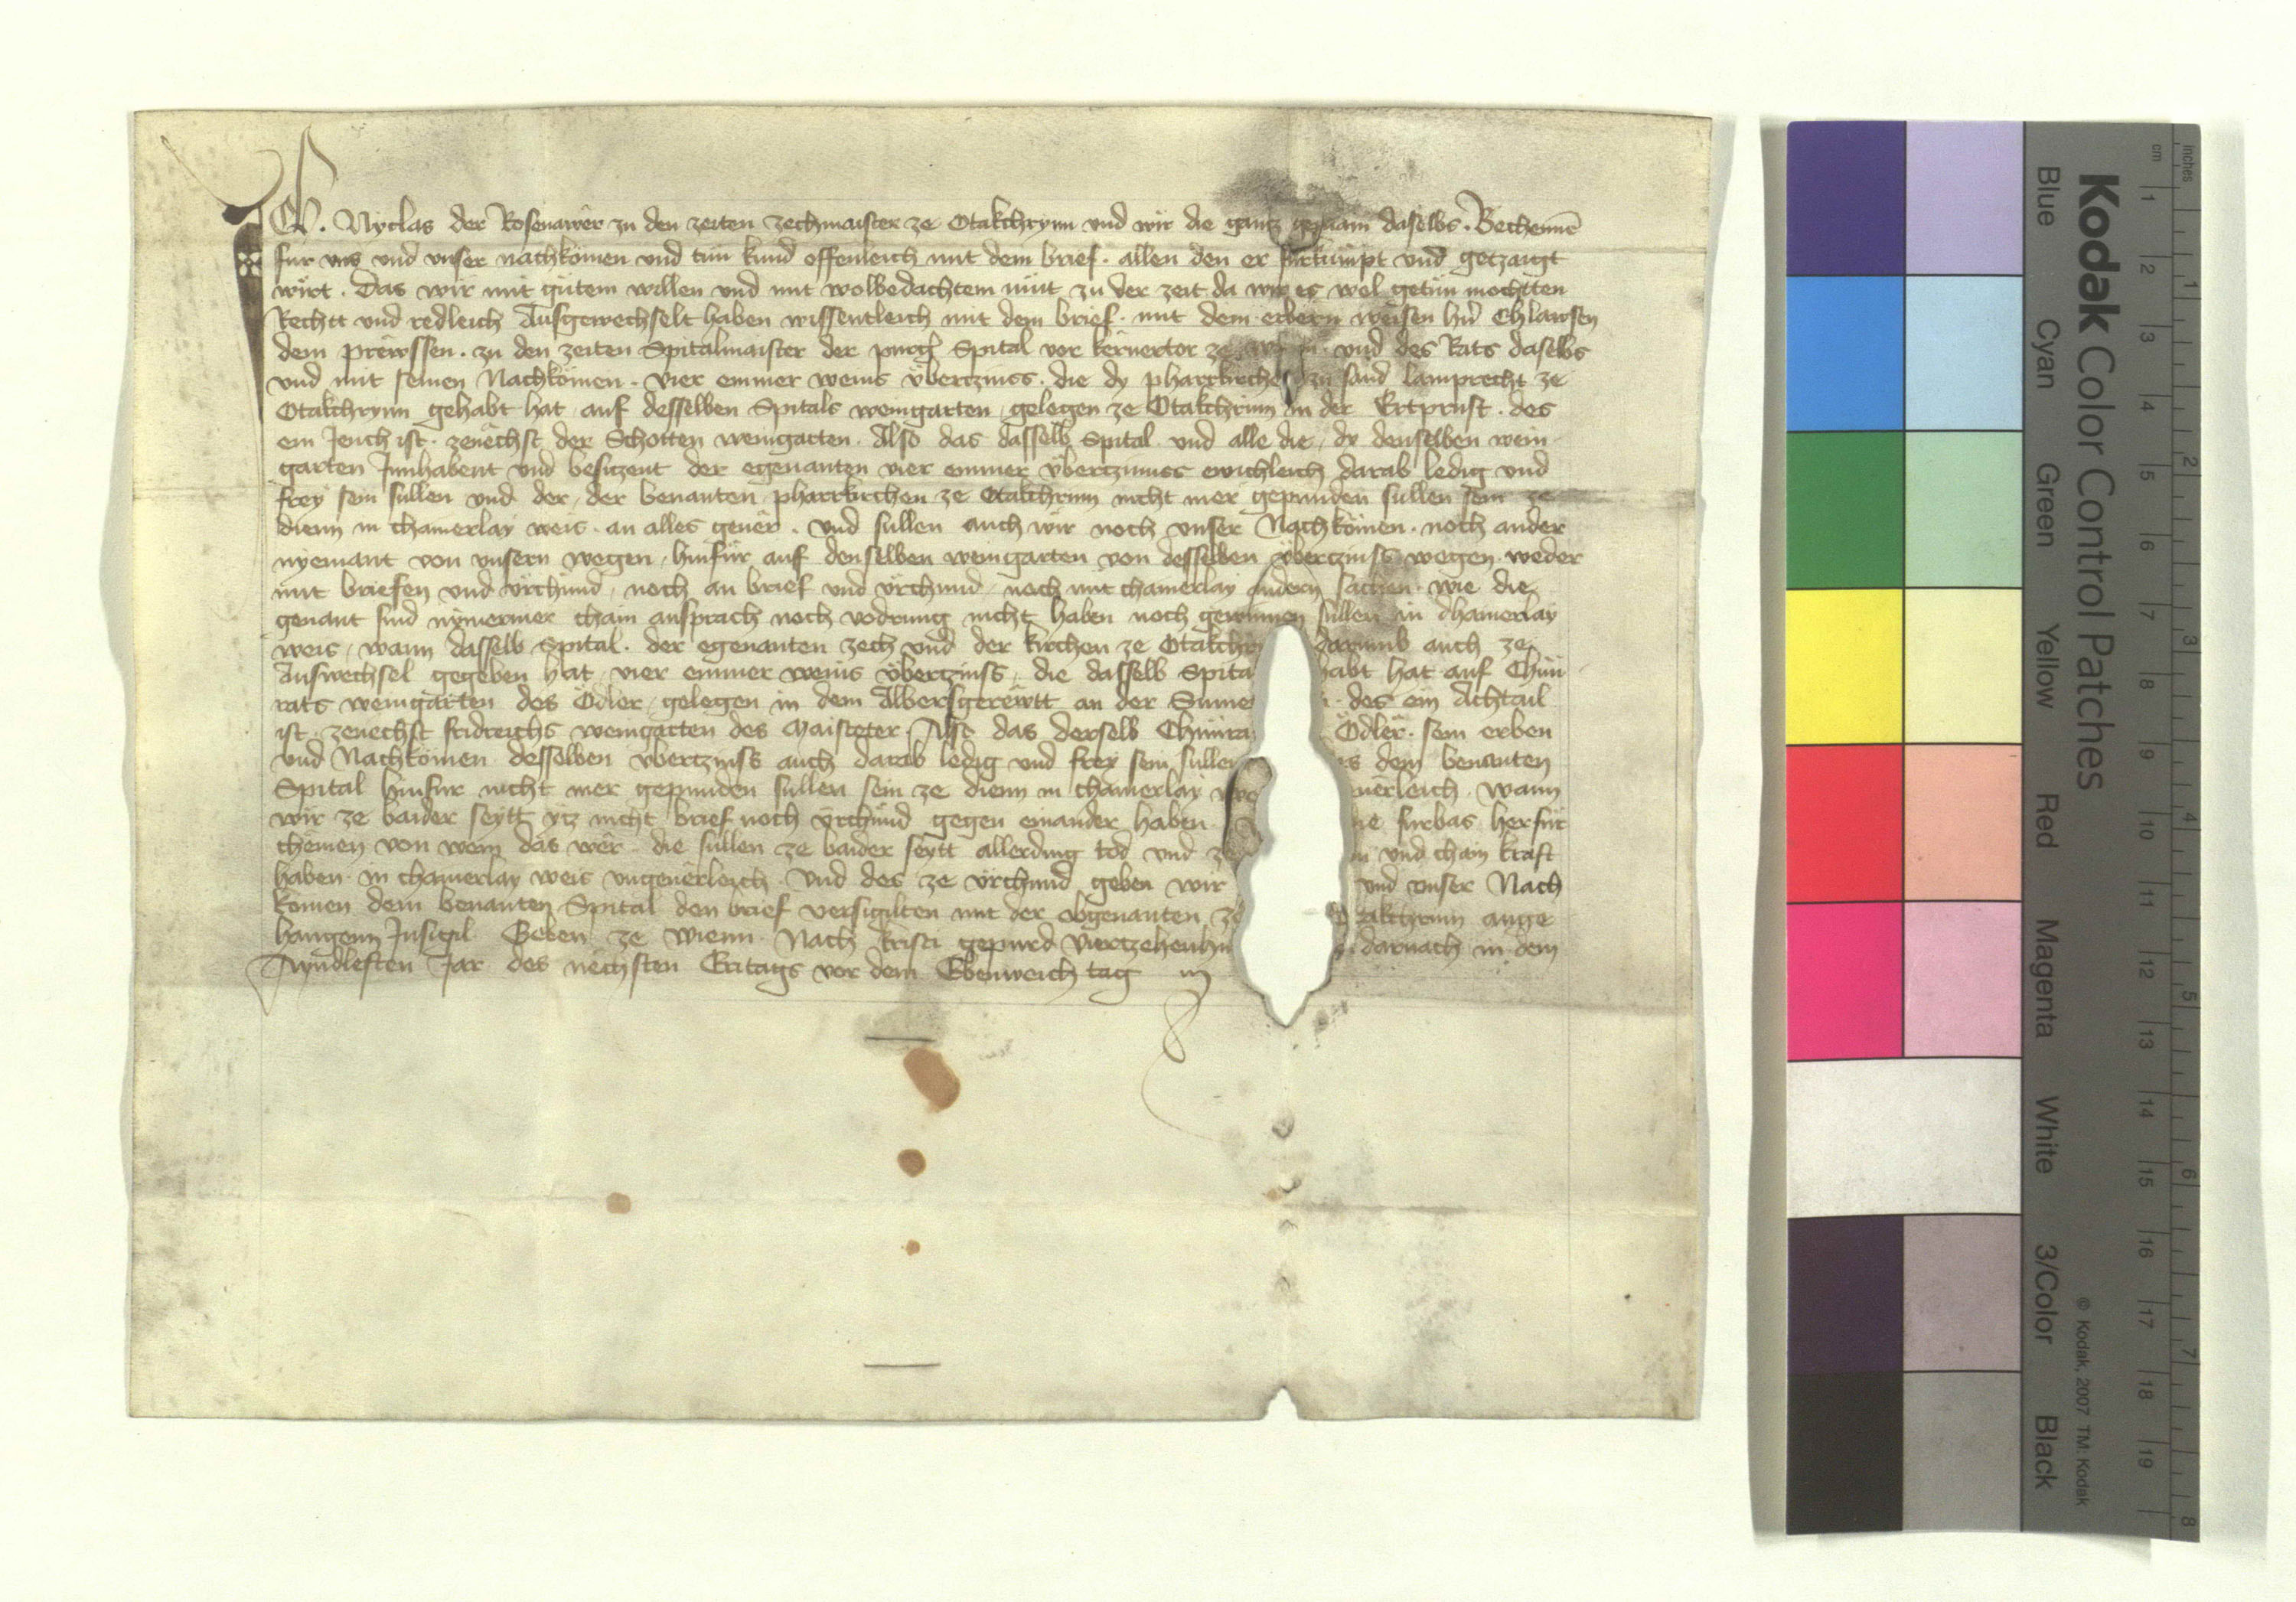 Ich . Nyclas der Rosenawer zu den zeiten zechmaister ze Otakchrynn und wir die gancz gemain daselbs . Bechennē
für uns und unser nachkömen und tün kund offenleich mit dem brief . allen den er fürkümpt und getzaigt
wirt . Das wir mit gütem willen und mit wolbedachtem müt zu der zeit da wir es wol getün mochtten
Rechtt und redleich Ausgewechselt haben wissentleich mit dem brief . mit dem erbern weisen hn̄ Chlawsen
dem prewssen . zu den zeiten Spitalmaister der purg̃ Spital vor kernertor ze und des Rats daselbs
und mit seinen Nachkömen . vier emmer weins übertzinss . die dy pharrkirchen zu sand lamprecht ze
Otakchrynn gehabt hat auf desselben Spitals weingarten gelegen ze Otakchrinn in der Ertprust . des
ein Jeuch ist . zenechst der Schotten weingarten . Also das dasselb Spital und alle die dy denselben wein
garten Innhabent und besiczent der egenanten vier emmer übertzinss ewichleich darab ledig und
frey sein süllen und der der benanten pharrkirchen ze Otakchrinn nicht mer gepunden süllen sein ze
dienn in chainerlay weis . an alles gever . und süllen auch wir noch unser Nachkömen . noch ander
nyemant von unsern wegen hinfür auf denselben weingarten von desselben übertzinss wegen . weder
mit briefen und ürchünd noch an brief und ürchund noch mit chainerlay andern sachen . wie die
genant sind nymermer chain ansprach noch vodrung nicht haben noch gewinnen süllen in chainerlay
weis wann dasselb Spital . der egenanten zech und der kirchen ze Otakchr darumb auch ze
Auswechsel gegeben hat vier emmer weins übertzinss die dasselb Spita habt hat auf Chün
rats weingarten des Ödler gelegen in dem Albersgerewtt an der Sume . des ein Achtail
ist . zenechst fridreichs weingarten des Maisteter . Also das derselb Chünra Ödler . sein erben
und Nachkömen desselben übertzinss auch darab ledig und frey sein süllen dem benanten
Spital hinfür nicht mer gepunden süllen sein ze dienn in chainerlay verleich . wann
wir ze baider seytt ytz nicht brief noch ürchünd gegen einander haben fürbas herfür
chömen von wem das wer . die süllen ze baider seytt allerding tod und ze und chain kraft
haben in chainerlay weis ungeverleich . Und des ze ürchund geben wir und unser Nach
komen dem benanten Spital den brief versigilten mit der obgenanten ze takchrinn ange
hangenn Insigil Geben ze Wienn Nach kristi gepurd Viertzehenhu darnach in dem
Ayndleften Jar des nechsten Eritags vor dem Ebenweich tag
Kodak Color Control Patches
Blue Cyan Green Yellow Red Magenta White 3/Color Black
© Kodak, 2007 TM: Kodak
cm 1 2 3 4 5 6 7 8 9 10 11 12 13 14 15 16 17 18 19
inches 1 2 3 4 5 6 7 8